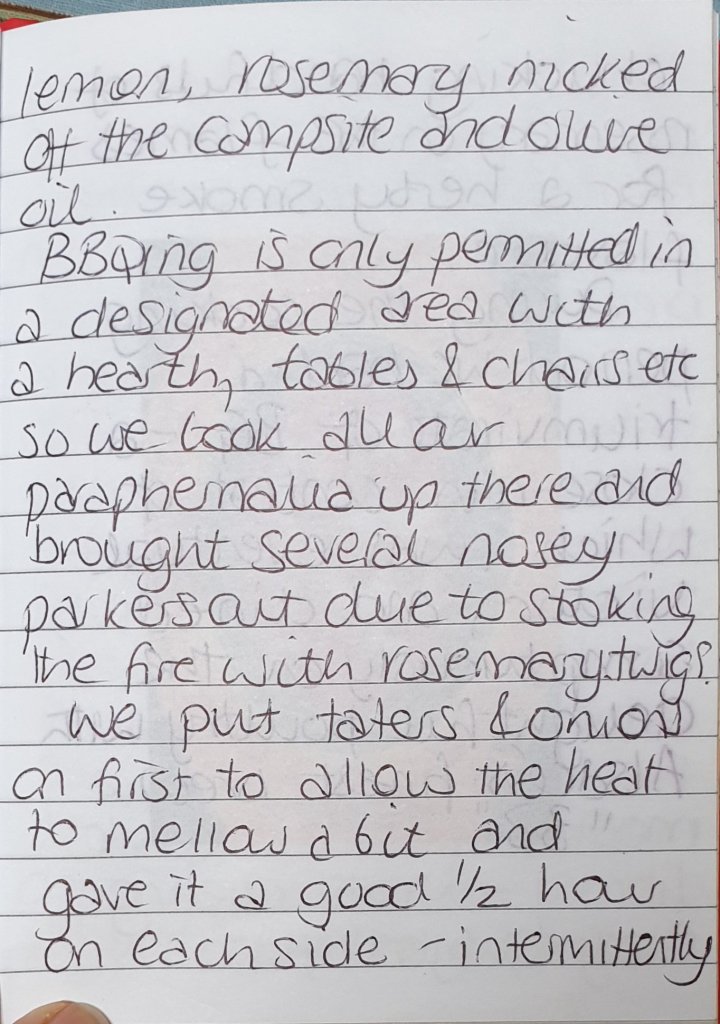 lemon, rosemary nicked
off the campsite and olive
oil.
BBQing is only permitted in
a designated area with
a hearth, tables & chairs etc
so we took all our
paraphernalia up there and
brought several nosey
parkers out due to stoking
the fire with rosemary twigs.
We put taters & onions
on first to allow the heat
to mellow a bit and
gave it a good 1/2 hour
on each side - intermittently